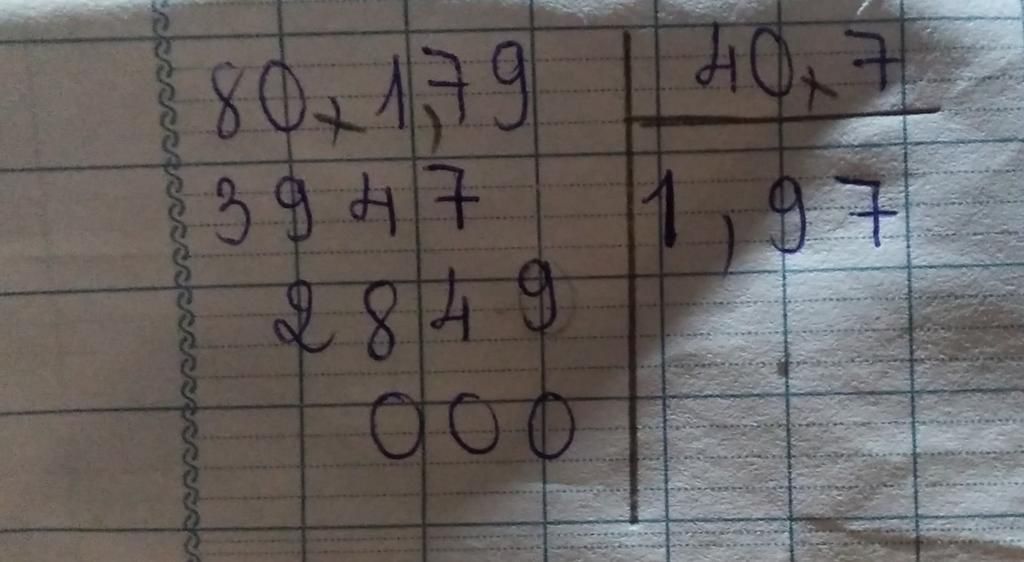 80,1,79 | 40,7
3947 | 1,97
2849
000